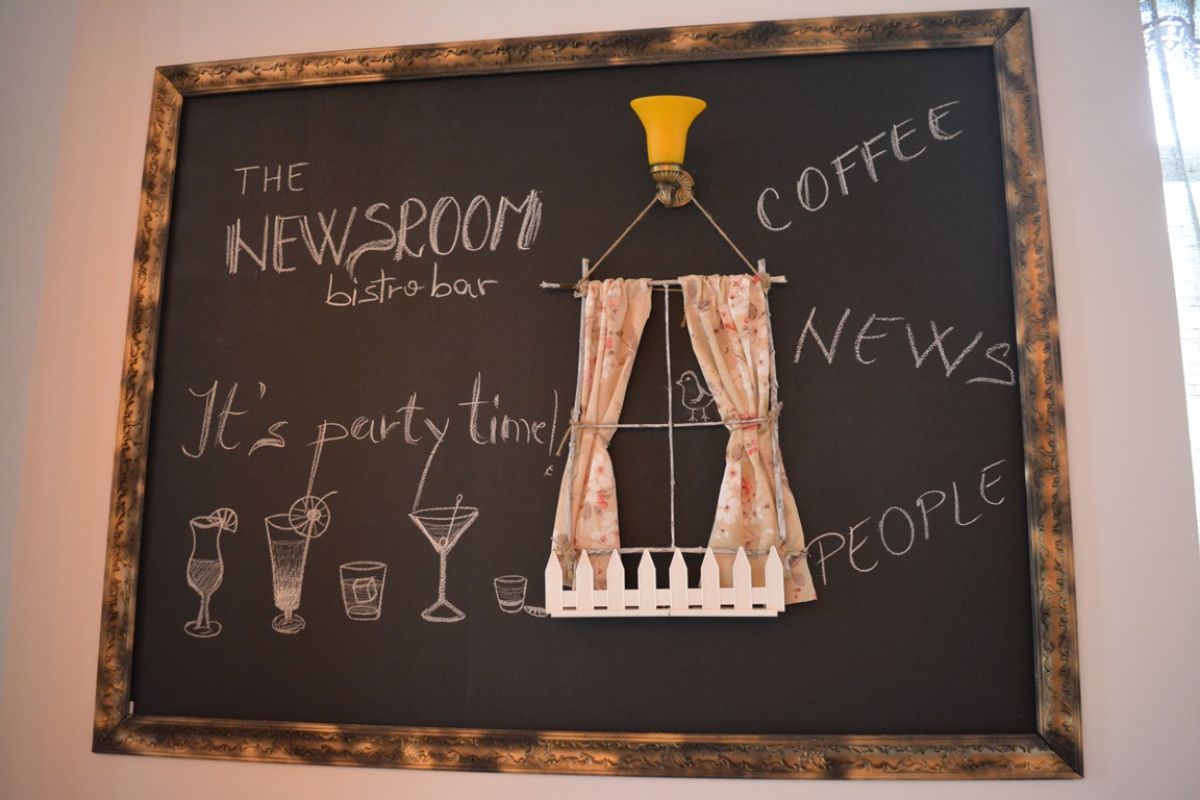 THE
NEWSROOM
bistro bar
It's party time!
COFFEE
NEWS
PEOPLE